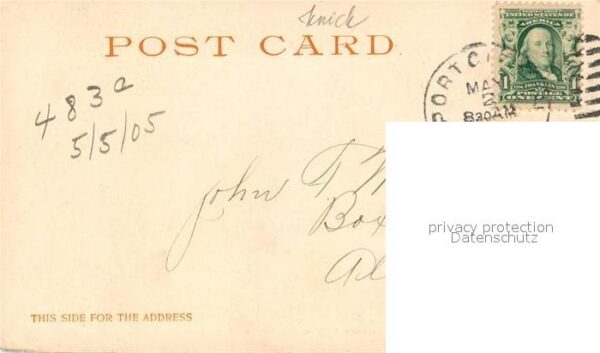 knick
POST CARD
SERIES 1902
UNITED STATES OF
AMERICA
1
ONE CENT
PORT C
MAY
2
830AM
483a
5/5/05
John T
Box
privacy protection
Datenschutz
THIS SIDE FOR THE ADDRESS